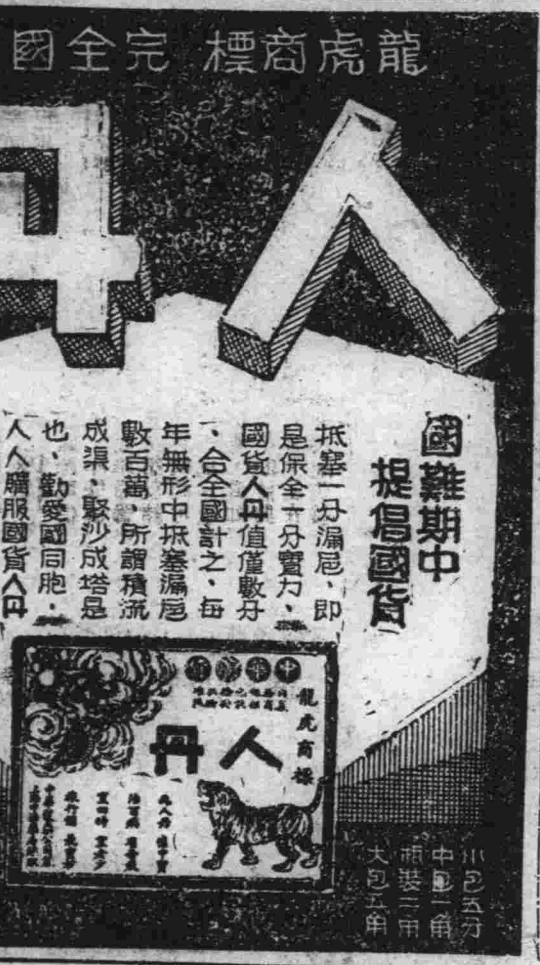 龍虎商標 完全國
人丹
國難期中
提倡國貨
抵塞一分漏巵、即
是保全一分實力、
國貨人丹值僅數分
、合全國計之、每
年無形中抵塞漏巵
數百萬、所謂積流
成渠、聚沙成塔是
也、勸愛國同胞、
人人購服國貨人丹
龍虎商標
人丹
小包五分
中包一角
瓶裝二角
大包五角